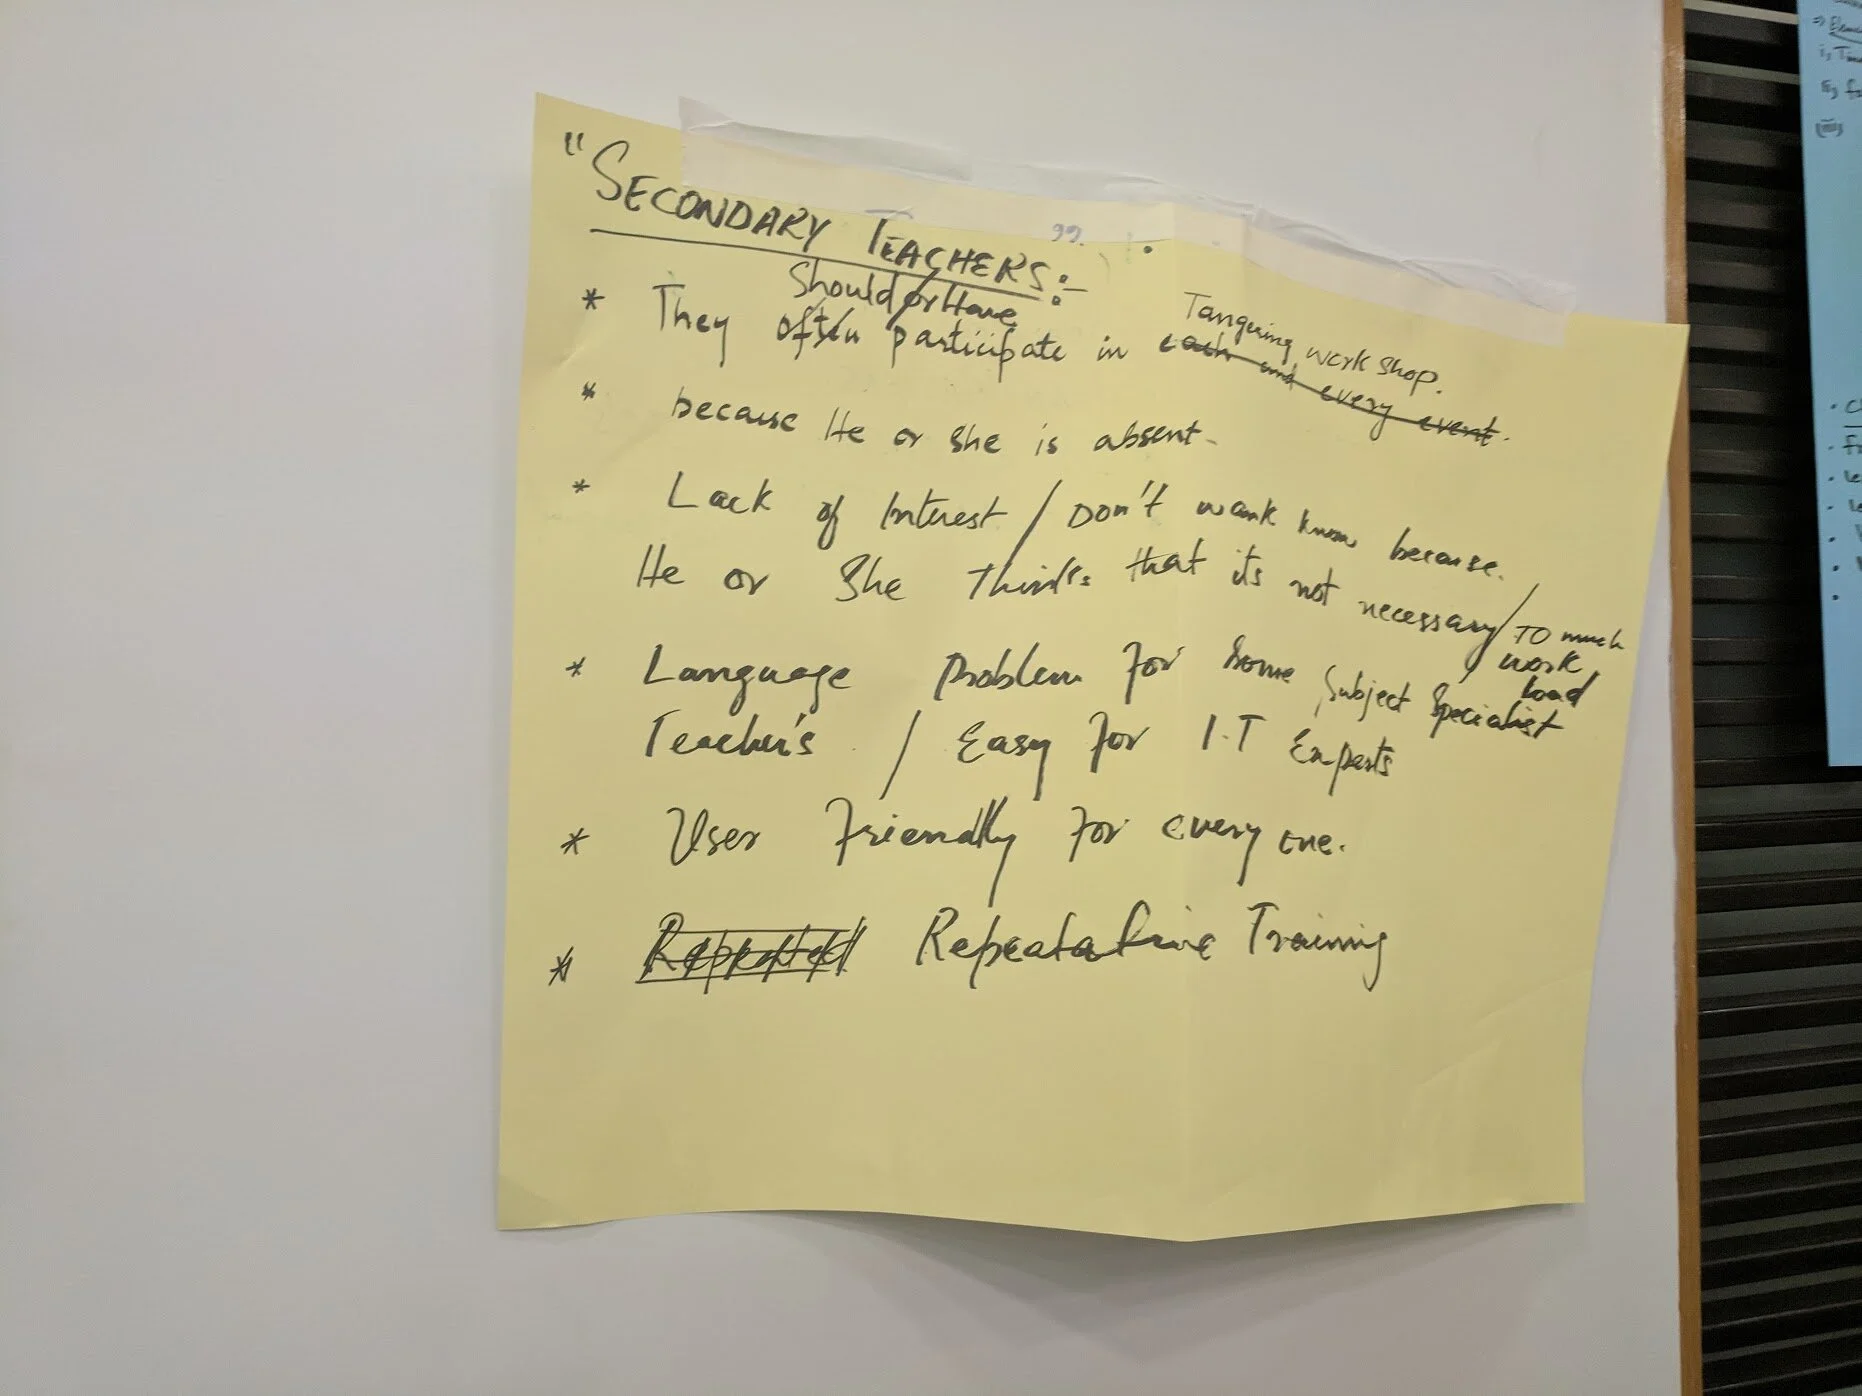 "SECONDARY TEACHERS:-
Should or Have
* They often participate in each and every event.
Tanguing work shop.
* because He or She is absent-
* Lack of Interest / Don't wank know because.
He or She Thinks that its not necessary / TO much
work
Load
* Language Problem for Some Subject Specialist
Teacher's / Easy for I.T Experts
* User Friendly for every one.
* Repeated Repeatative Training